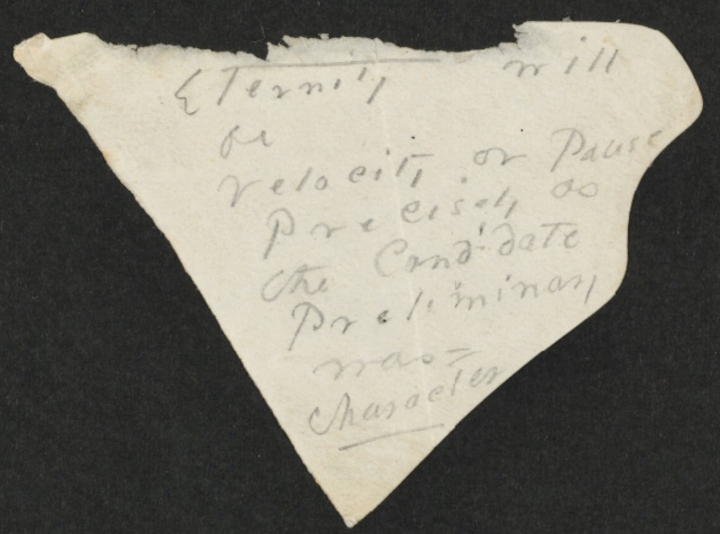 Eternity will
be
Velocity or Pause
Precisely as
the Candidate
Preliminary
was -
Character